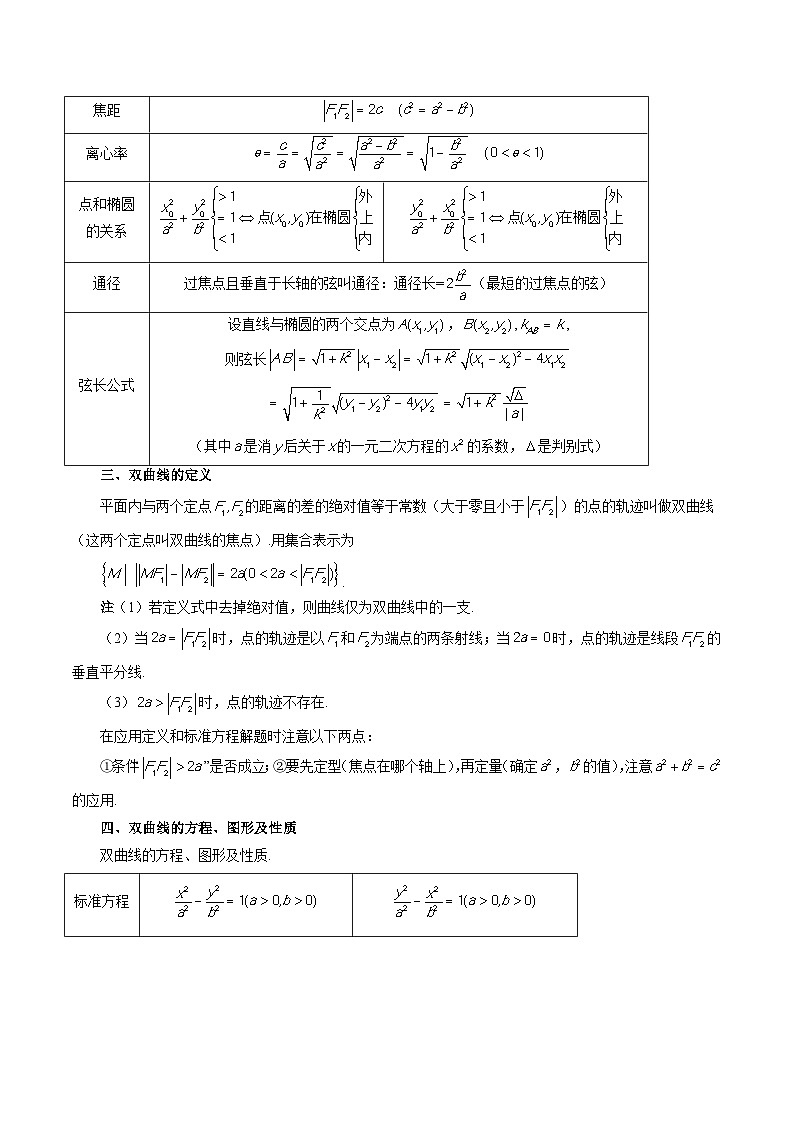 焦距 |F₁F₂| = 2c (c² = a² − b²)
离心率 e = c/a = √(c²/a²) = √((a² − b²)/a²) = √(1 − b²/a²) (0 < e < 1)
点和椭圆的关系 x₀²/a² + y₀²/b² { > 1 = 1 < 1 ⇔ 点(x₀,y₀)在椭圆 { 外 上 内 y₀²/a² + x₀²/b² { > 1 = 1 < 1 ⇔ 点(x₀,y₀)在椭圆 { 外 上 内
通径 过焦点且垂直于长轴的弦叫通径：通径长=2b²/a（最短的过焦点的弦）
弦长公式
设直线与椭圆的两个交点为A(x₁,y₁)，B(x₂,y₂)，k_AB = k，
则弦长|AB| = √(1+k²)|x₁ − x₂| = √(1+k²)√((x₁ − x₂)² − 4x₁x₂)
= √(1+1/k²)√((y₁ − y₂)² − 4y₁y₂) = √(1+k²) √Δ/|a|
（其中a是消y后关于x的一元二次方程的x²的系数，Δ是判别式）
三、双曲线的定义
平面内与两个定点F₁,F₂的距离的差的绝对值等于常数（大于零且小于|F₁F₂|）的点的轨迹叫做双曲线
（这两个定点叫双曲线的焦点）.用集合表示为
{M| ||MF₁| − |MF₂|| = 2a(0 < 2a < |F₁F₂|)}.
注（1）若定义式中去掉绝对值，则曲线仅为双曲线中的一支.
（2）当2a = |F₁F₂|时，点的轨迹是以F₁和F₂为端点的两条射线；当2a = 0时，点的轨迹是线段F₁F₂的
垂直平分线.
（3）2a > |F₁F₂|时，点的轨迹不存在.
在应用定义和标准方程解题时注意以下两点：
①条件|F₁F₂| > 2a”是否成立；②要先定型（焦点在哪个轴上），再定量（确定a²，b²的值），注意a² + b² = c²
的应用.
四、双曲线的方程、图形及性质
双曲线的方程、图形及性质.
标准方程 x²/a² − y²/b² = 1(a > 0,b > 0) y²/a² − x²/b² = 1(a > 0,b > 0)